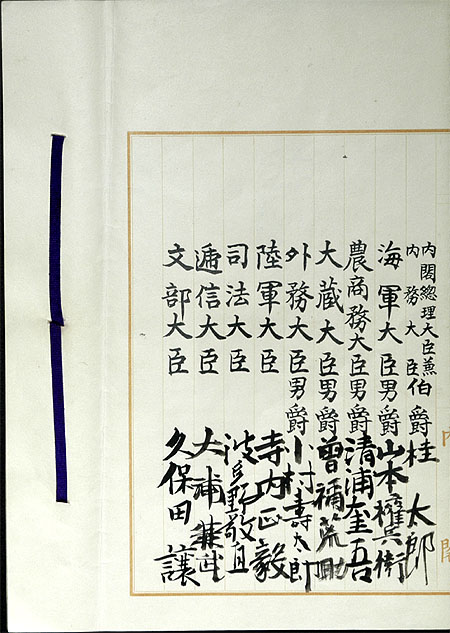 内閣總理大臣兼
内務大臣伯爵桂太郎
海軍大臣男爵山本權兵衛
農商務大臣男爵清浦奎吾
大蔵大臣男爵曾禰荒助
外務大臣男爵小村壽太郎
陸軍大臣寺内正毅
司法大臣波多野敬直
遞信大臣大浦兼武
文部大臣久保田讓
内閣